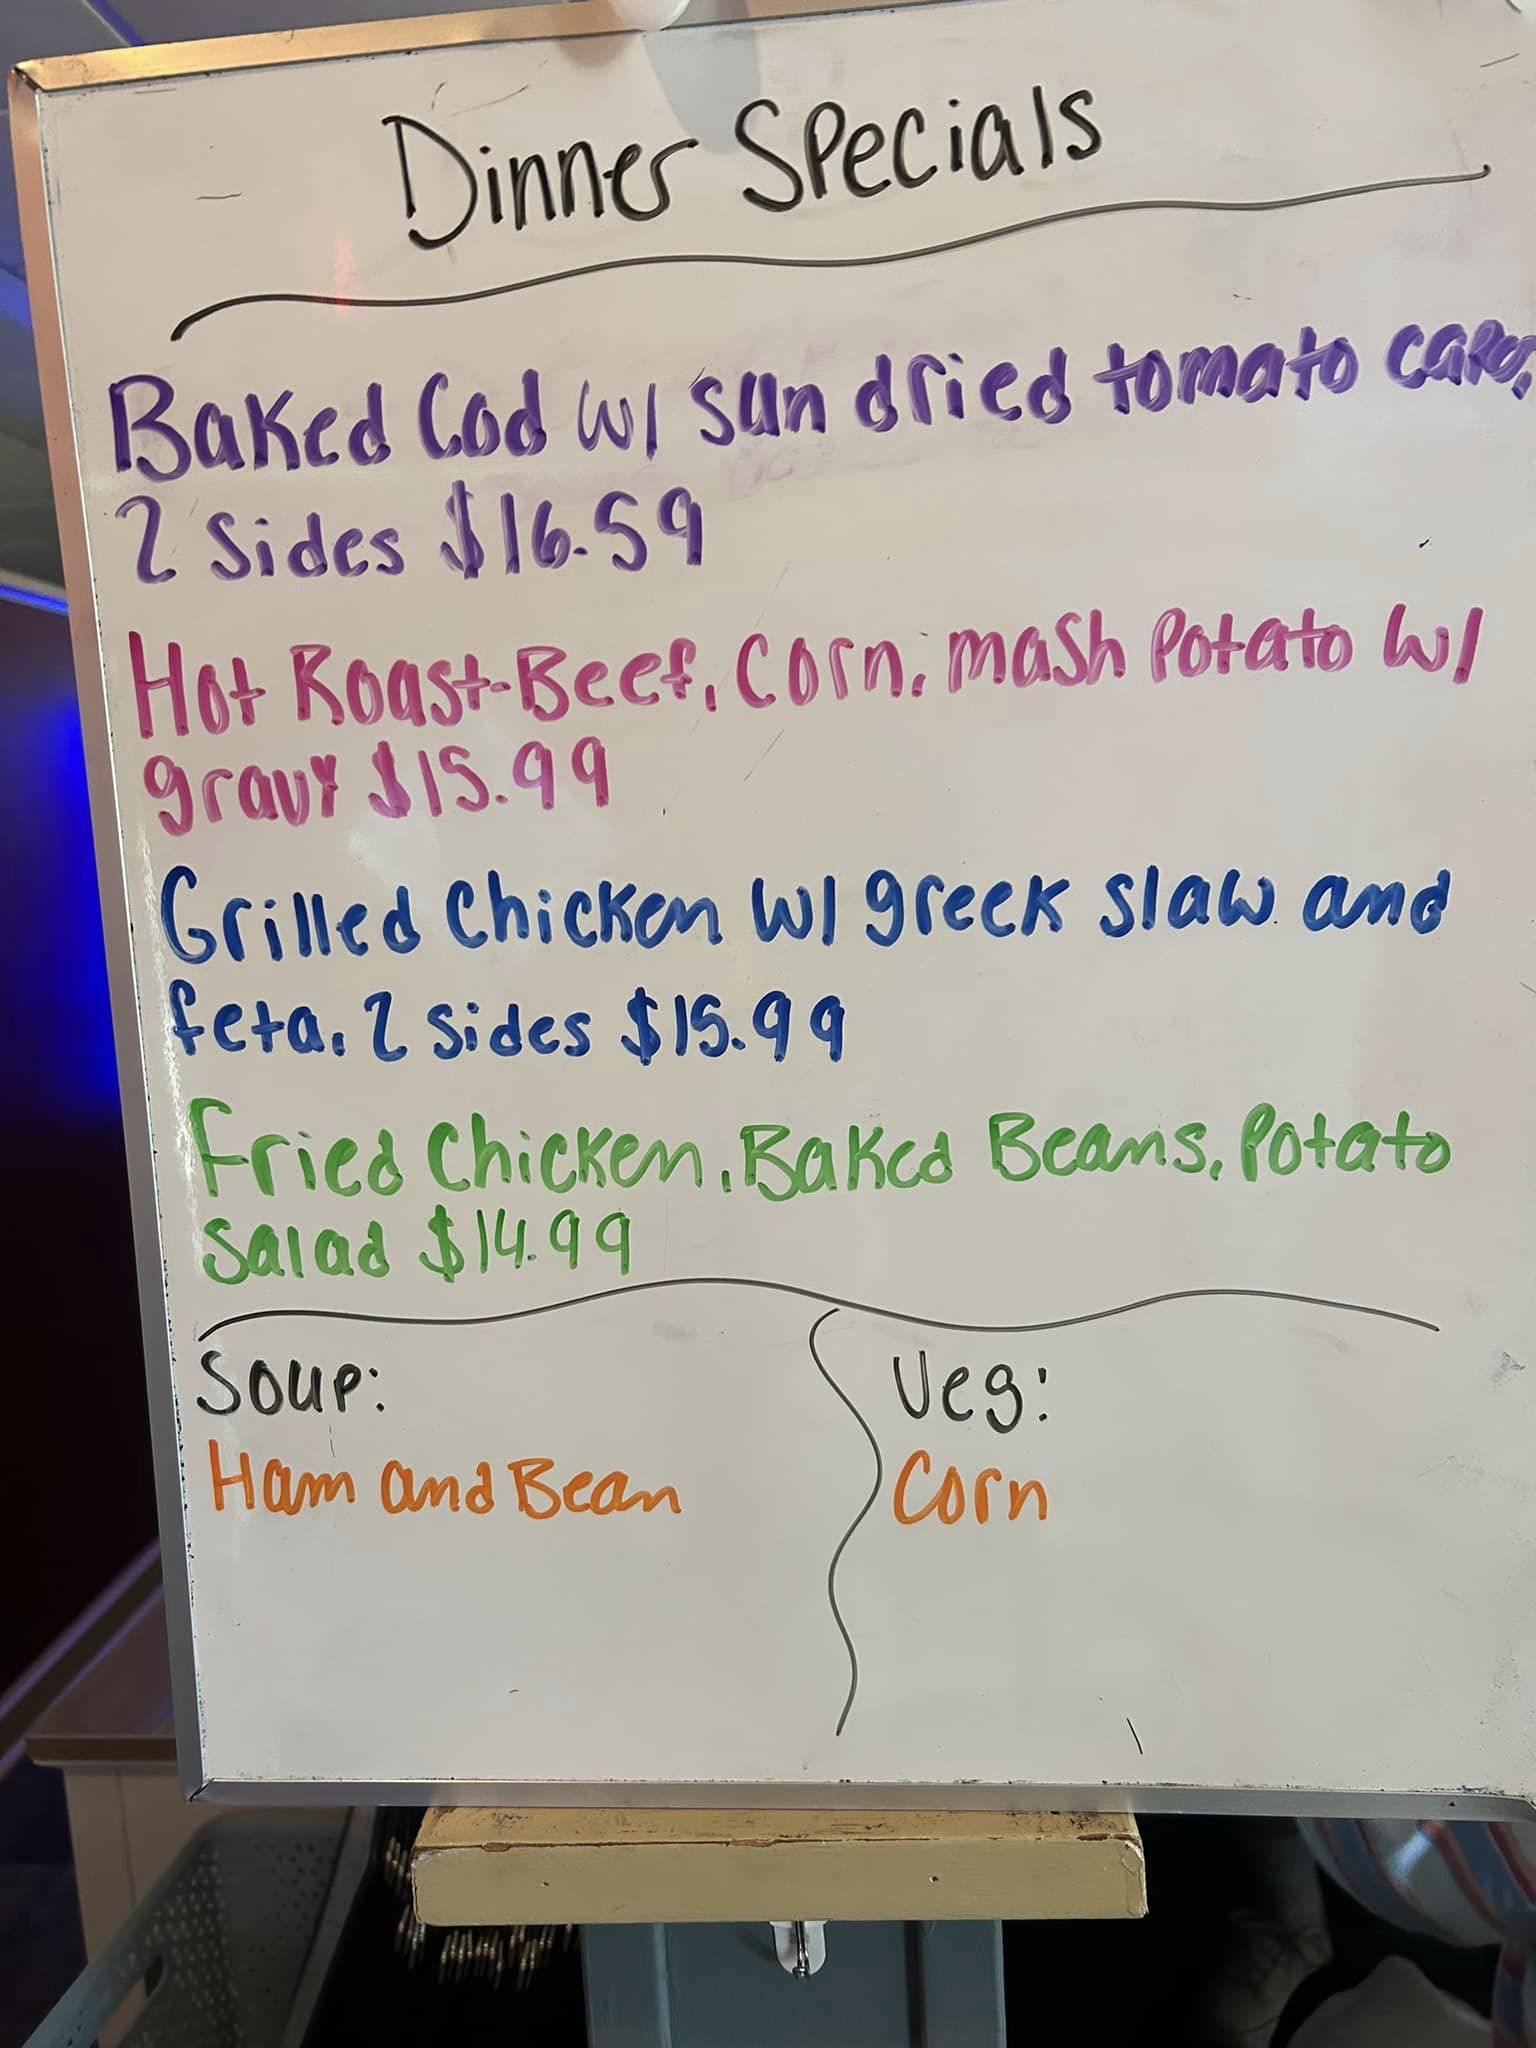 Dinner Specials
Baked Cod w/ sun dried tomato
2 sides $16.59
Hot Roast-Beef, Corn, mash potato w/
gravy $15.99
Grilled Chicken w/ greek slaw and
feta, 2 sides $15.99
Fried Chicken, Baked Beans, Potato
Salad $14.99
Soup:
Veg:
Ham and Bean
Corn